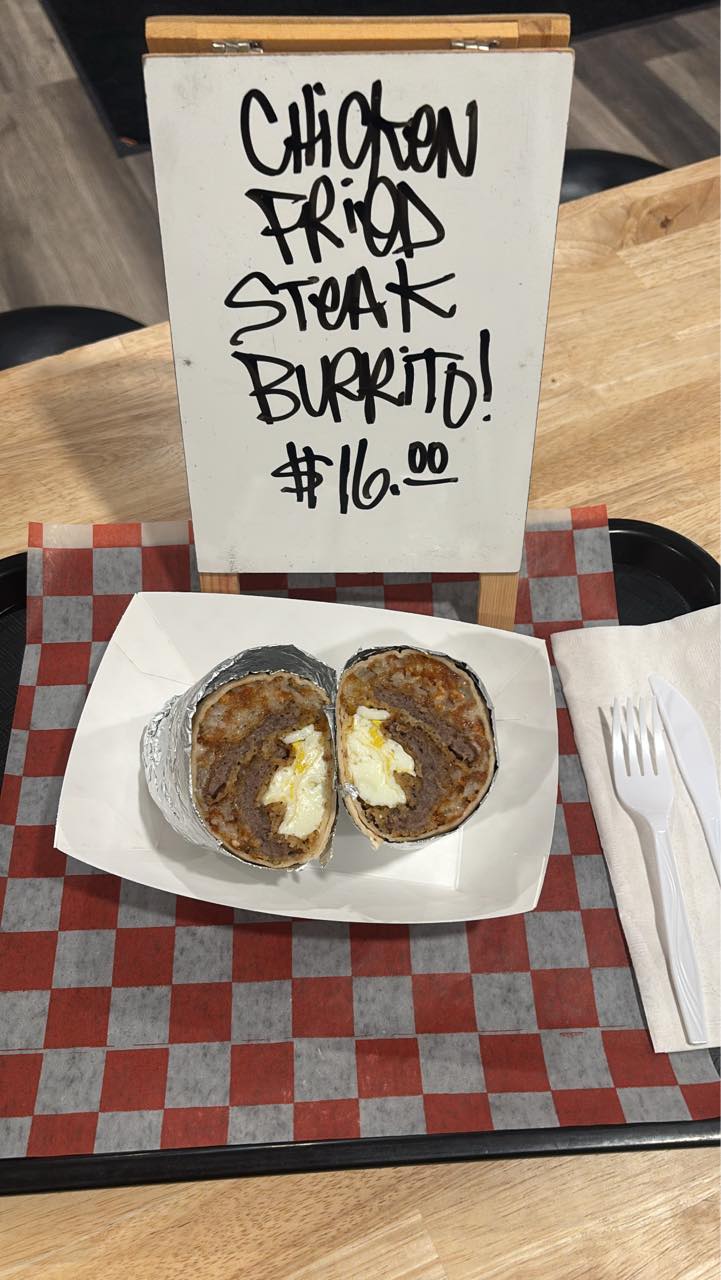 CHiCKEN
FRiED
STEAK
BURRiTO!
$16.00